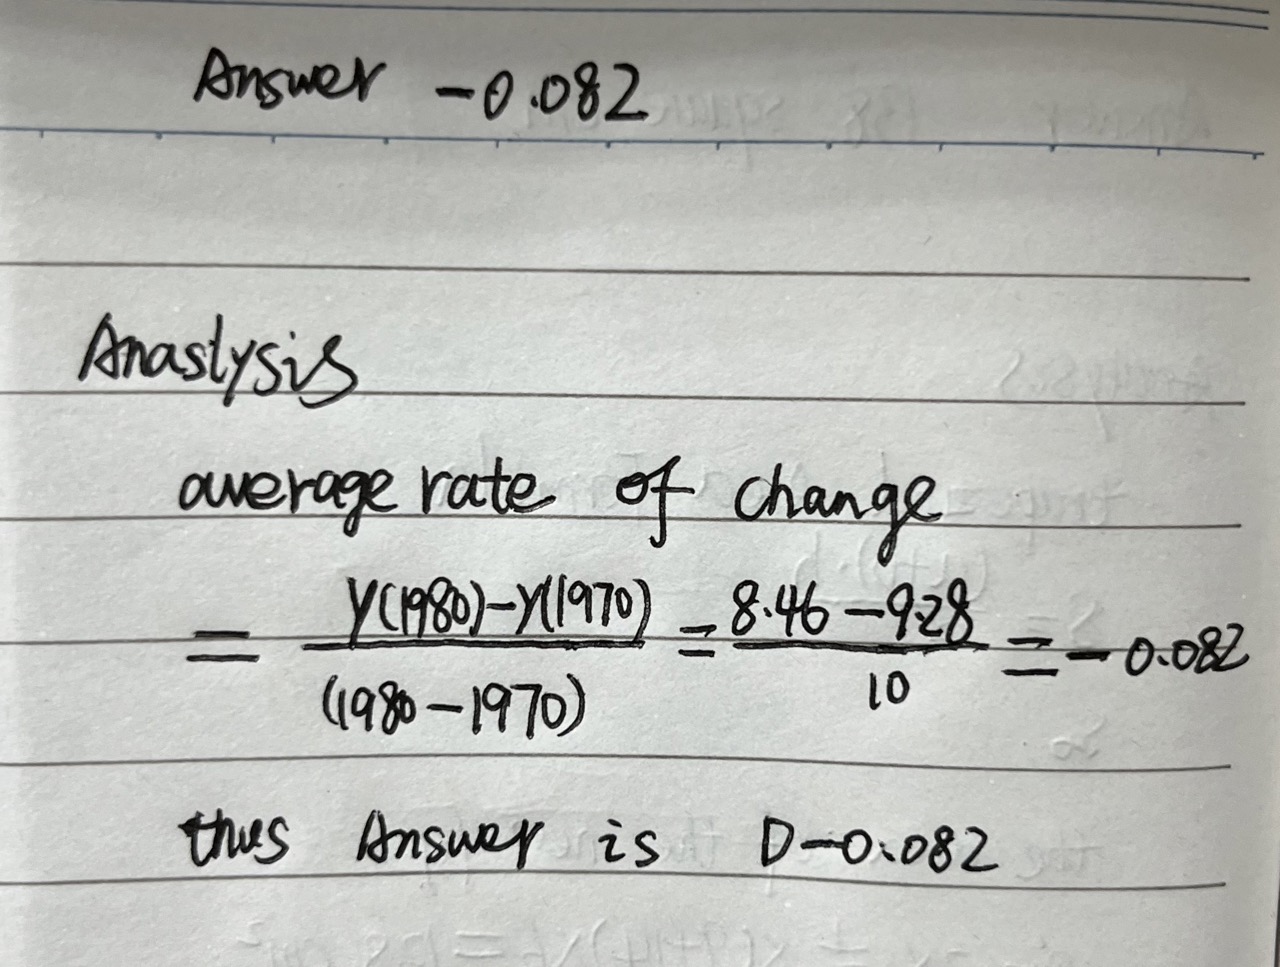 Answer -0.082
Anaslysis
average rate of change
= Y(1980)-Y(1970) / (1980-1970) = 8.46-9.28 / 10 = -0.082
thus Answer is D-0.082